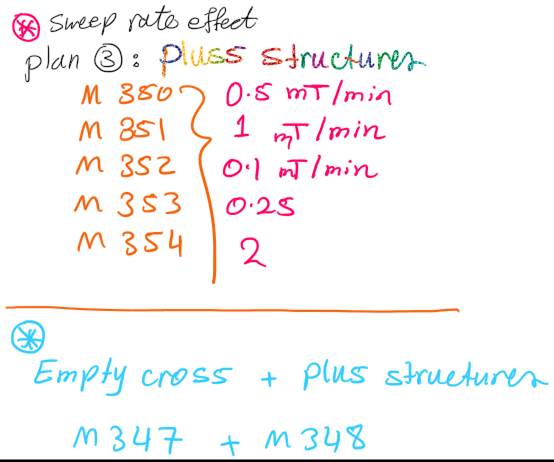 Sweep rate effect
plan ③: pluss structures
M 350 } 0.5 mT/min
M 351 1 mT/min
M 352 0.1 mT/min
M 353 0.25
M 354 2
Empty cross + plus structures
M347 + M348